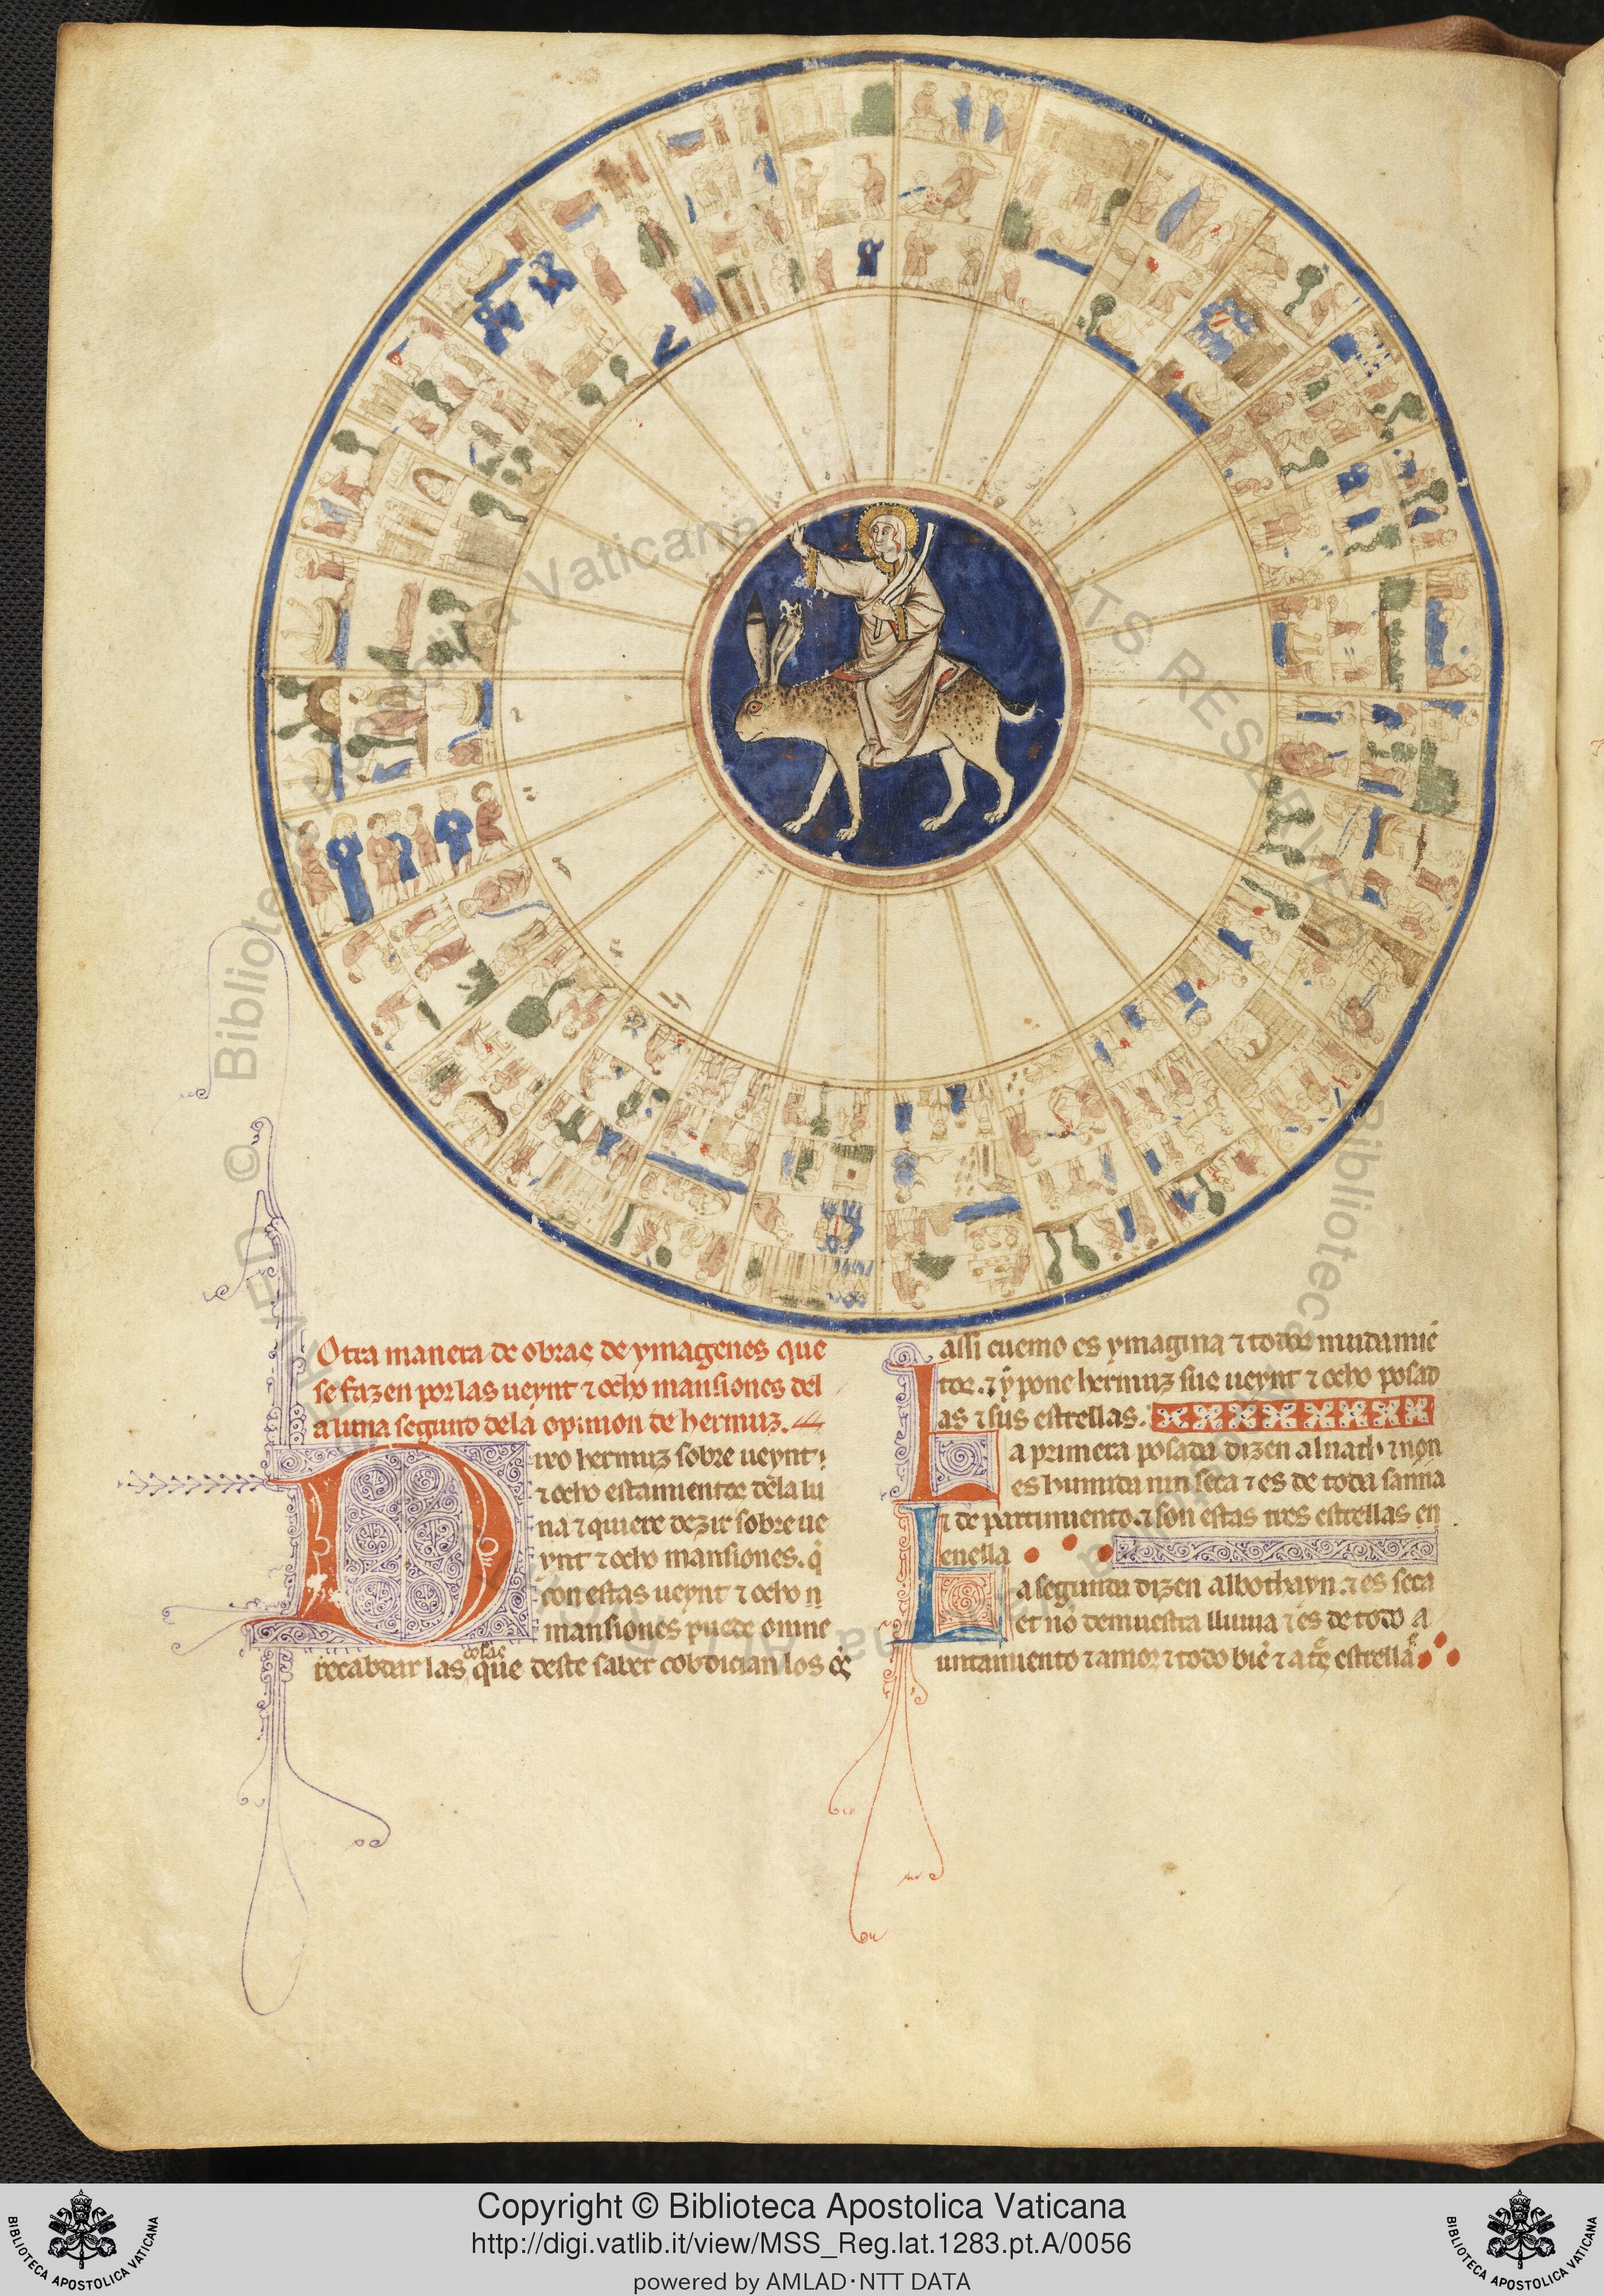 Otra manera de obras de ymagenes que
se fazen por las ueynt ⁊ ocho mansiones del
a luna segund dela opinion de hermus.
Dixo hermus sobre ueynt
⁊ ocho estamientos dela lu
na ⁊ quiere dezir sobre ue
ynt ⁊ ocho mansiones. q̇
con estas ueynt ⁊ ocho
mansiones puede omne
cosas
recabdar las que deste saber cobdician los
assi cuemo es ymagina ⁊ todos mudamiē
tos. ⁊ y pone hermus sus ueynt ⁊ ocho posad
as ⁊ sus estrellas.
La primera posada dizen alnath ⁊ non
es humida nin seca ⁊ es de toda sanna
⁊ de partimiento. ⁊ son estas tres estrellas en
enella
La segunda dizen albothayn. ⁊ es seca
et nō demuestra lluuia ⁊ es de todo a
untamiento ⁊ amor ⁊ todo biē ⁊ estrellas
© Biblioteca Apostolica Vaticana
ALL RIGHTS RESERVED
Copyright © Biblioteca Apostolica Vaticana
http://digi.vatlib.it/view/MSS_Reg.lat.1283.pt.A/0056
powered by AMLAD·NTT DATA
BIBLIOTECA APOSTOLICA VATICANA
BIBLIOTECA APOSTOLICA VATICANA